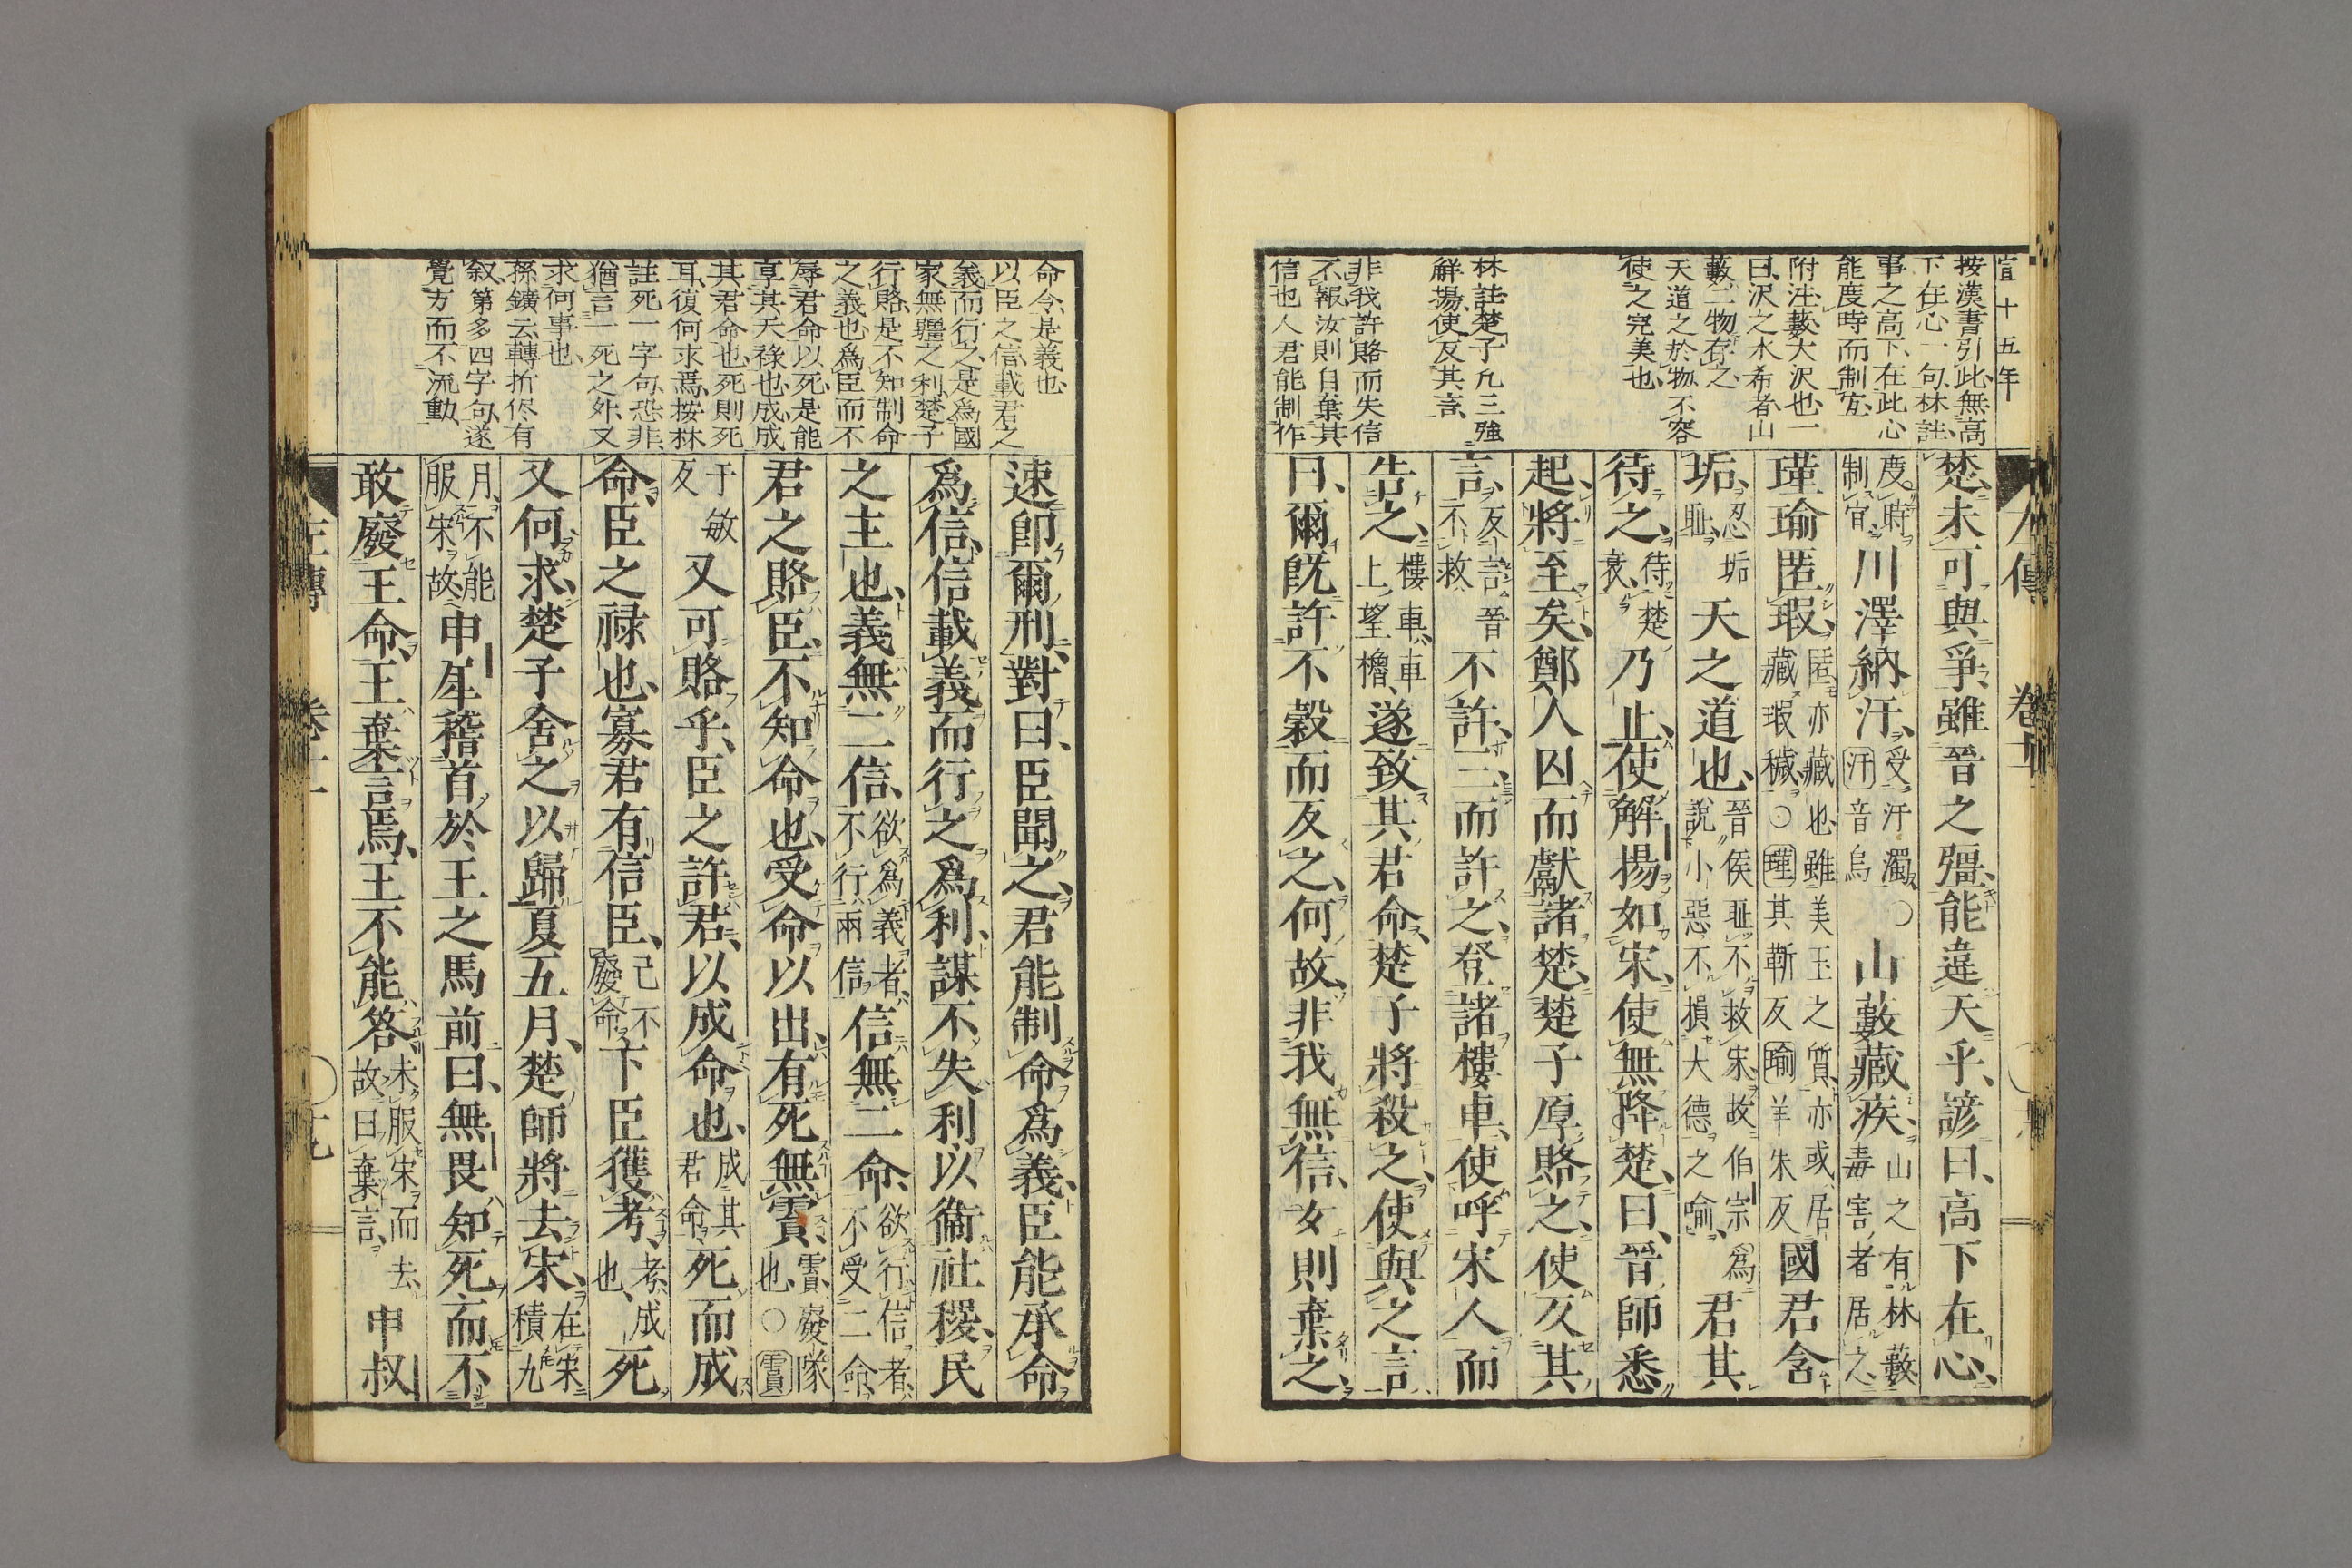 宣十五年
按漢書引此無高
下在心一句林註
事之高下在此心
能度時而制宜
附注藪大沢也一
曰沢之水希者山
藪二物存之
天道之於物不容
使之完美也
林註楚子凡三強
解揚使反其言
非我許賂而失信
不報汝則自棄其
信也人君能制作
楚未可與爭雖晉之彊能違天乎諺曰高下在心
度時制宜川澤納汙受汙濁○汙音烏山藪藏疾山之有林藪毒害者居之
瑾瑜匿瑕匿亦藏也雖美玉之質亦或居藏瑕穢○瑾其靳反瑜羊朱反國君含
垢忍垢耻天之道也晉侯耻不救宋故伯宗為說小惡不損大德之喻君其
待之待楚衰乃止使解揚如宋使無降楚曰晉師悉
起將至矣鄭人囚而獻諸楚楚子厚賂之使反其
言反言晉不救不許三而許之登諸樓車使呼宋人而
告之樓車車上望櫓遂致其君命楚子將殺之使與之言
曰爾既許不穀而反之何故非我無信女則棄之
命令是義也
以臣之信載君之
義而行之是為國
家無疆之利楚子
行賂是不知制命
之義也為臣而不
辱君命以死是能
享其天祿也成成
其君命也死則死
耳復何求焉按林
註死一字句恐非
猶言一死之外又
求何事也
孫鑛云轉折侭有
叙第多四字句遂
覺方而不流動
速即爾刑對曰臣聞之君能制命為義臣能承命
為信信載義而行之為利謀不失利以衞社稷民
之主也義無二信欲為義者不行兩信信無二命欲行信者不受二命
君之賂臣不知命也受命以出有死無霣霣廢隊也○霣
于敏反又可賂乎臣之許君以成命也成其君命死而成
命臣之祿也寡君有信臣己不廢命下臣獲考考成也死
又何求楚子舍之以歸夏五月楚師將去宋在宋積九
月不能服宋故申犀稽首於王之馬前曰無畏知死而不
敢廢王命王棄言焉王不能答未服宋而去故曰棄言申叔